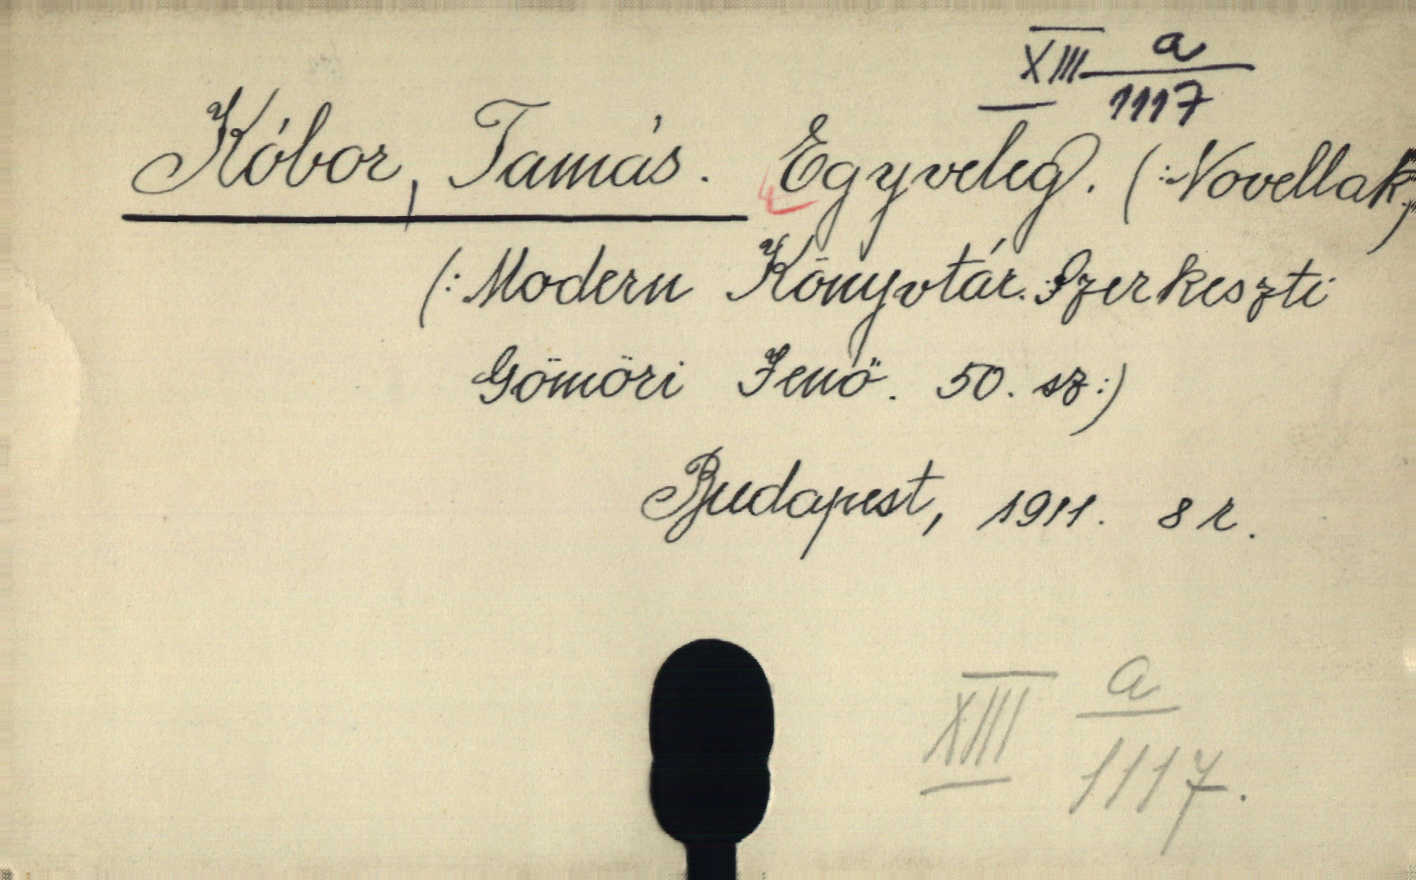 XIII a/1117
Kóbor, Tamás. Egyveleg. (: Novellák:)
(: Modern Könyvtár. Szerkeszti
Gömöri Jenő. 50. sz :)
Budapest, 1911. 8 r.
XIII a/1117.